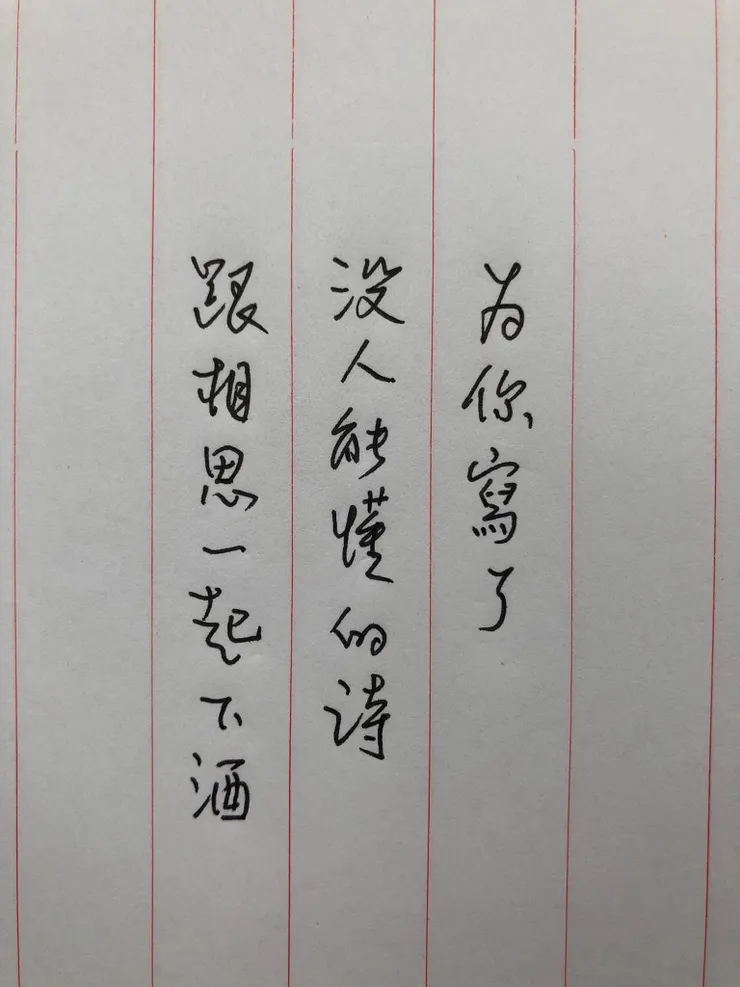 为你寫了
没人能懂的诗
跟相思一起下酒